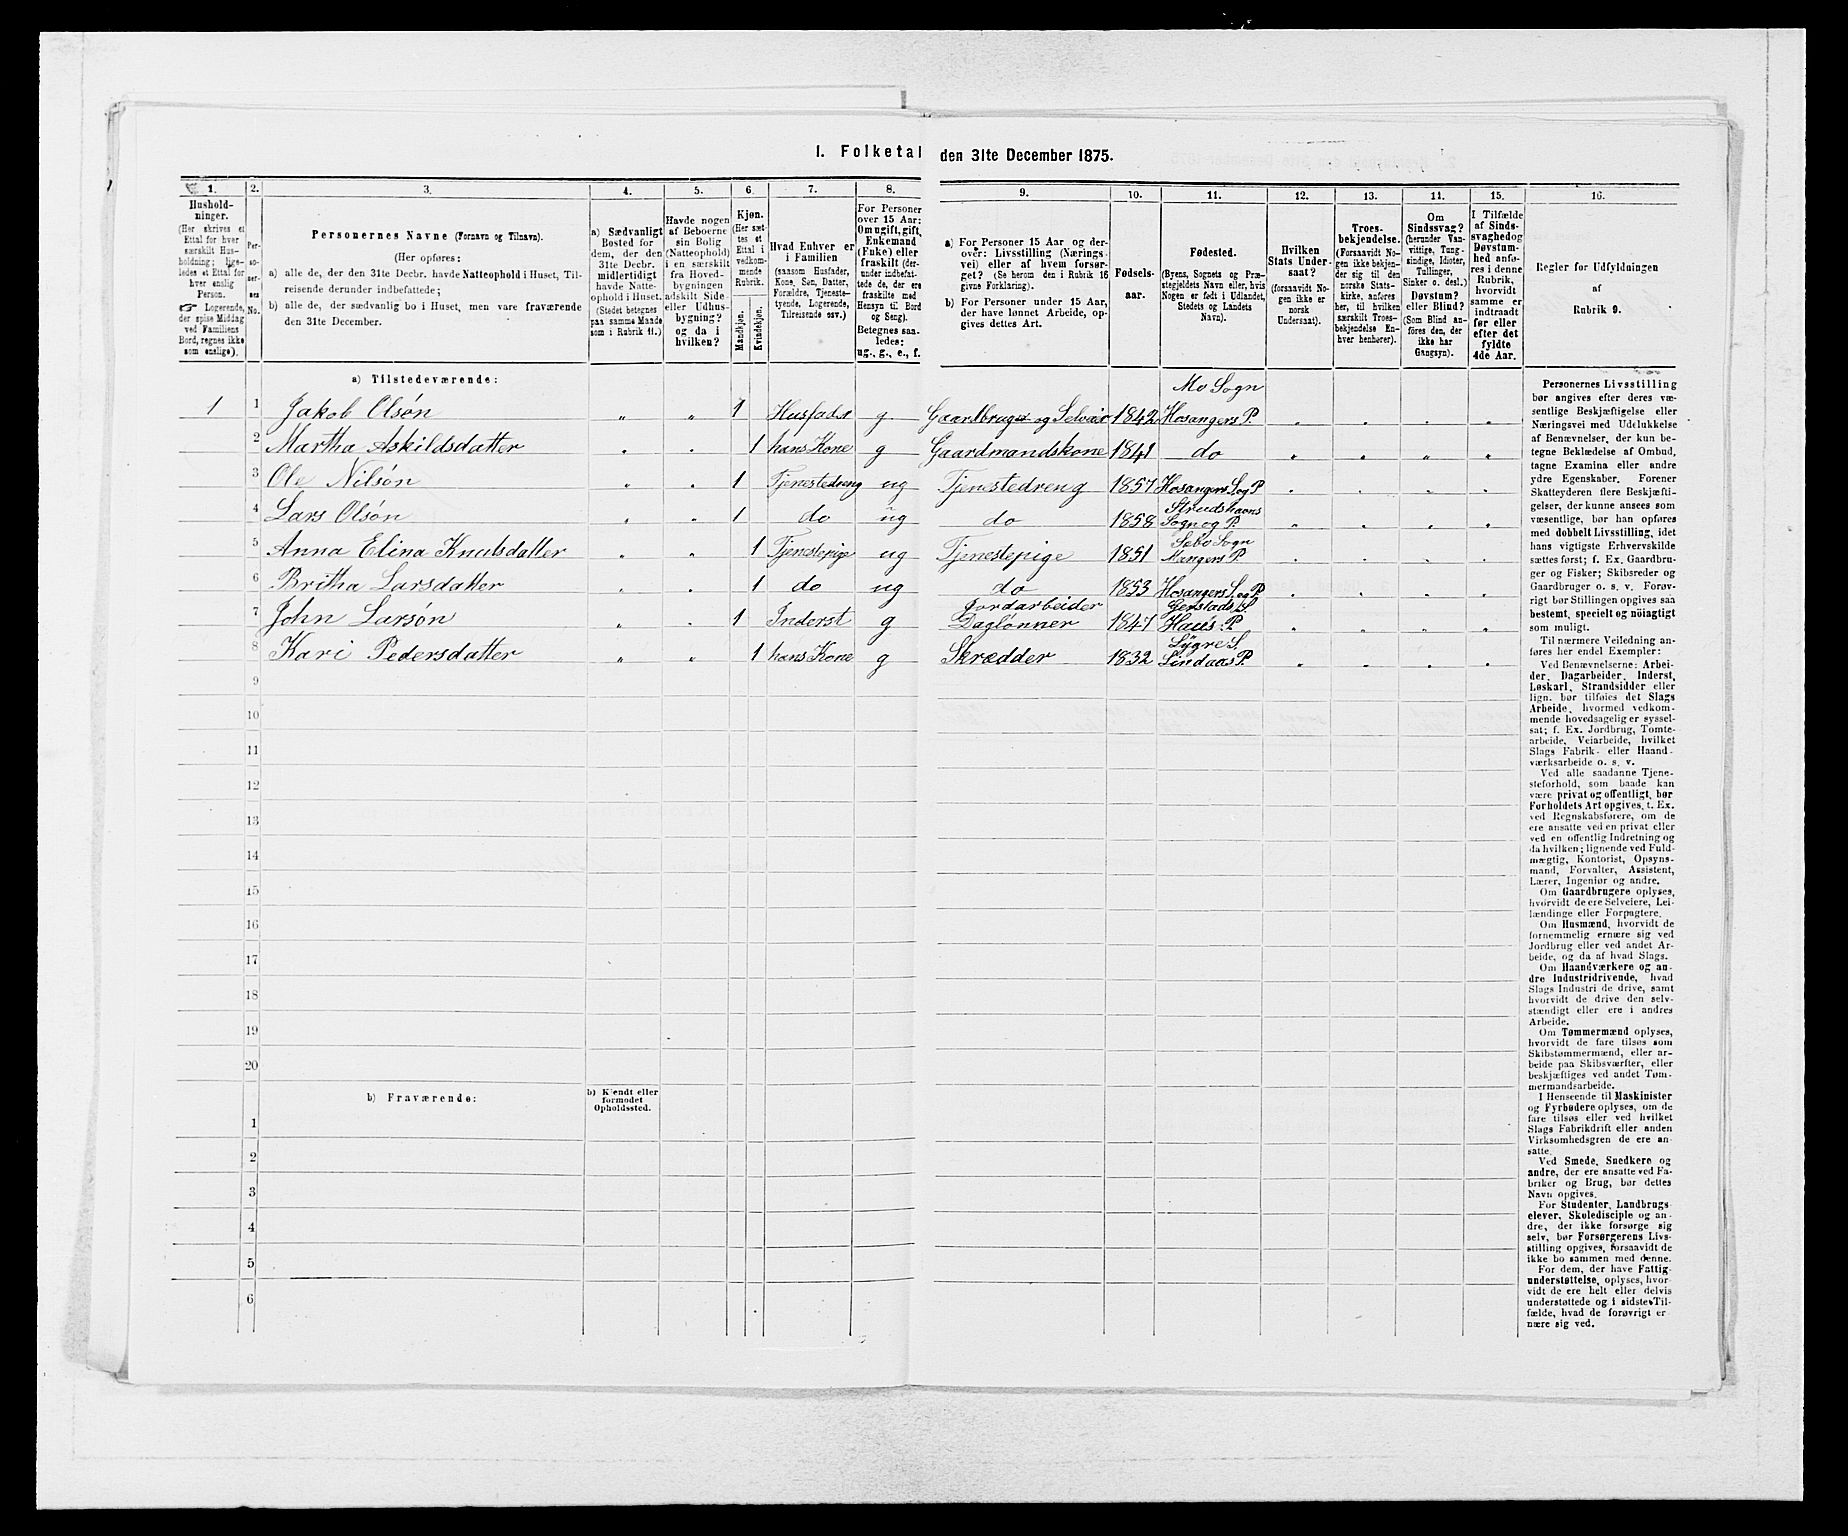 I. Folketal den 31te December 1875.
1. 2. 3. 4. 5. 6. 7. 8. 9. 10. 11. 12. 13. 14. 15. 16.
Husholdninger.
(Her skrives et
Ettal for hver
særskilt Husholdning; ligeledes et Ettal for
hver enslig
Person.
☞ Logerende,
der spise Middag
ved Familiens
Bord, regnes ikke
som enslige).
Personernes No.
Personernes Navne (Fornavn og Tilnavn).
(Her opføres:
a) alle de, der den 31te Decbr. havde Natteophold i Huset, Tilreisende derunder indbefattede;
b) alle de, der sædvanlig bo i Huset, men vare fraværende
den 31te December.
a) Sædvanligt
Bosted for
dem, der den
31te Decbr.
midlertidigt
havde Natteophold i Huset.
(Stedet betegnes
paa samme Maade
som i Rubrik 11.)
Havde nogen
af Beboerne
sin Bolig
(Natteophold)
i en særskilt
fra Hovedbygningen
adskilt Side-
eller Udhusbygning?
og da i
hvilken?
Kjøn.
(Her sættes et
Ettal i
vedkommende
Rubrik.
Mandkjøn.
Kvindekjøn.
Hvad Enhver er
i Familien
(saasom Husfader,
Kone, Søn, Datter,
Forældre, Tjenestetyende, Logerende,
Tilreisende osv.)
For Personer
over 15 Aar:
Om ugift, gift,
Enkemand
(Enke) eller
fraskilt (derunder indbefattede de, der ere
fraskilte med
Hensyn til Bord
og Seng).
Betegnes saaledes:
ug., g., e., f.
a) For Personer 15 Aar og derover: Livsstilling (Næringsvei) eller af hvem forsørget? (Se herom den i Rubrik 16
givne Forklaring).
b) For Personer under 15 Aar,
der have lønnet Arbeide, opgives dettes Art.
Fødselsaar.
Fødested.
(Byens, Sognets og Præstegjeldets Navn eller, hvis
Nogen er født i Udlandet,
Stedets og Landets
Navn).
Hvilken
Stats Undersaat?
(forsaavidt Nogen ikke er
norsk
Undersaat).
Troesbekjendelse.
(Forsaavidt Nogen ikke bekjender sig til den
norske Statskirke, anføres
her, til hvilken
særskilt Troesbekjendelse Enhver henhører).
Om
Sindssvag?
(herunder Vanvittige, Tungsindige, Idioter,
Tullinger,
Sinker o. desl.)
Døvstum?
eller Blind?
(Som Blind anføres den, der
ikke har
Gangsyn).
I Tilfælde
af Sindssvaghed og
Døvstumhed anføres i denne
Rubrik,
hvorvidt
samme er
indtraadt
før eller
efter det
fyldte
4de Aar.
Regler for Udfyldningen
af
Rubrik 9.
a) Tilstedeværende:
1 1 Jakob Olsøn " " 1 Husfader g Gaardbruger og Selveier 1842 Mo Sogn Hosangers P. " " " "
2 Martha Askildsdatter " " 1 hans Kone g Gaardmandskone 1841 do " " " "
3 Ole Nilsøn " " 1 Tjenestedreng ug Tjenestedreng 1857 Hosangers S. og P " " " "
4 Lars Olsøn " " 1 do ug do 1858 Strudshavns Sogn og P. " " " "
5 Anna Elina Knutsdatter " " 1 Tjenestepige ug Tjenestepige 1851 Sebo Sogn Mangers P. " " " "
6 Britha Larsdatter " " 1 do ug do 1853 Hosangers S. og P " " " "
7 John Larsøn " " 1 Inderst g Jordarbeider Daglønner 1847 Gerstads S Haus P. " " " "
8 Kari Pedersdatter " " 1 hans Kone g Skrædder 1832 Lygre S. Lindaas P. " " " "
9
10
11
12
13
14
15
16
17
18
19
20
b) Fraværende:
b) Kjendt eller
formodet
Opholdssted.
1
2
3
4
5
6
Personernes Livsstilling
bør angives efter deres væsentlige Beskjæftigelse eller
Næringsvei med Udelukkelse
af Benævnelser, der kun betegne Beklædelse af Ombud,
tagne Examina eller andre
ydre Egenskaber. Forener
Skatteyderen flere Beskjæftigelser, der kunne ansees som
væsentlige, bør han opføres
med dobbelt Livsstilling, idet
hans vigtigste Erhvervskilde
sættes først; f. Ex. Gaardbruger og Fisker; Skibsreder og
Gaardbruger o. s. v. Forøvrigt bør Stillingen opgives saa
bestemt, specielt og nöiagtigt
som muligt.
Til nærmere Veiledning anføres her endel Exempler:
Ved Benævnelserne: Arbeider, Dagarbeider, Inderst,
Løskarl, Strandsidder eller
lign. bør tilføies det Slags
Arbeide, hvormed vedkommende hovedsagelig er sysselsat; f. Ex. Jordbrug, Tomtearbeide, Veiarbeide, hvilket
Slags Fabrik- eller Haandværksarbeide o. s. v.
Ved alle saadanne Tjenesteforhold, som baade kan
være privat og offentligt, bør
Forholdets Art opgives, t. Ex.
ved Regnskabsførere, om de
ere ansatte ved en privat eller
ved en offentlig Indretning og
da hvilken; lignende ved Fuldmægtig, Kontorist, Opsynsmand, Forvalter, Assistent,
Lærer, Ingeniør og andre.
Om Gaardbrugere oplyses,
hvorvidt de ere Selveiere, Leilændinge eller Forpagtere.
Om Husmænd, hvorvidt de
fornemmelig ernære sig ved
Jordbrug eller ved andet Arbeide, og da af hvad Slags.
Om Haandværkere og andre Industridrivende, hvad
Slags Industri de drive, samt
hvorvidt de drive den selvstændigt eller ere i andres
Arbeide.
Om Tømmermænd oplyses,
hvorvidt de fare tilsøs som
Skibstømmermænd, eller arbeide paa Skibsværfter, eller
beskjæftiges ved andet Tømmermandsarbeide.
I Henseende til Maskinister
og Fyrbødere oplyses, om de
fare tilsøs eller ved hvilket
Slags Fabrikdrift eller anden
Virksomhedsgren de ere ansatte.
Ved Smede, Snedkere og
andre, der ere ansatte ved Fabriker og Brug, bør dettes
Navn opgives.
For Studenter, Landbrugselever, Skoledisciple og andre, der ikke forsørge sig
selv, bør Forsørgerens Livsstilling opgives, forsaavidt de
ikke bo sammen med denne.
For dem, der have Fattigunderstøttelse, oplyses, hvorvidt de ere helt eller delvis
understøttede og i sidste Tilfælde, hvad de forøvrigt ernære sig ved.